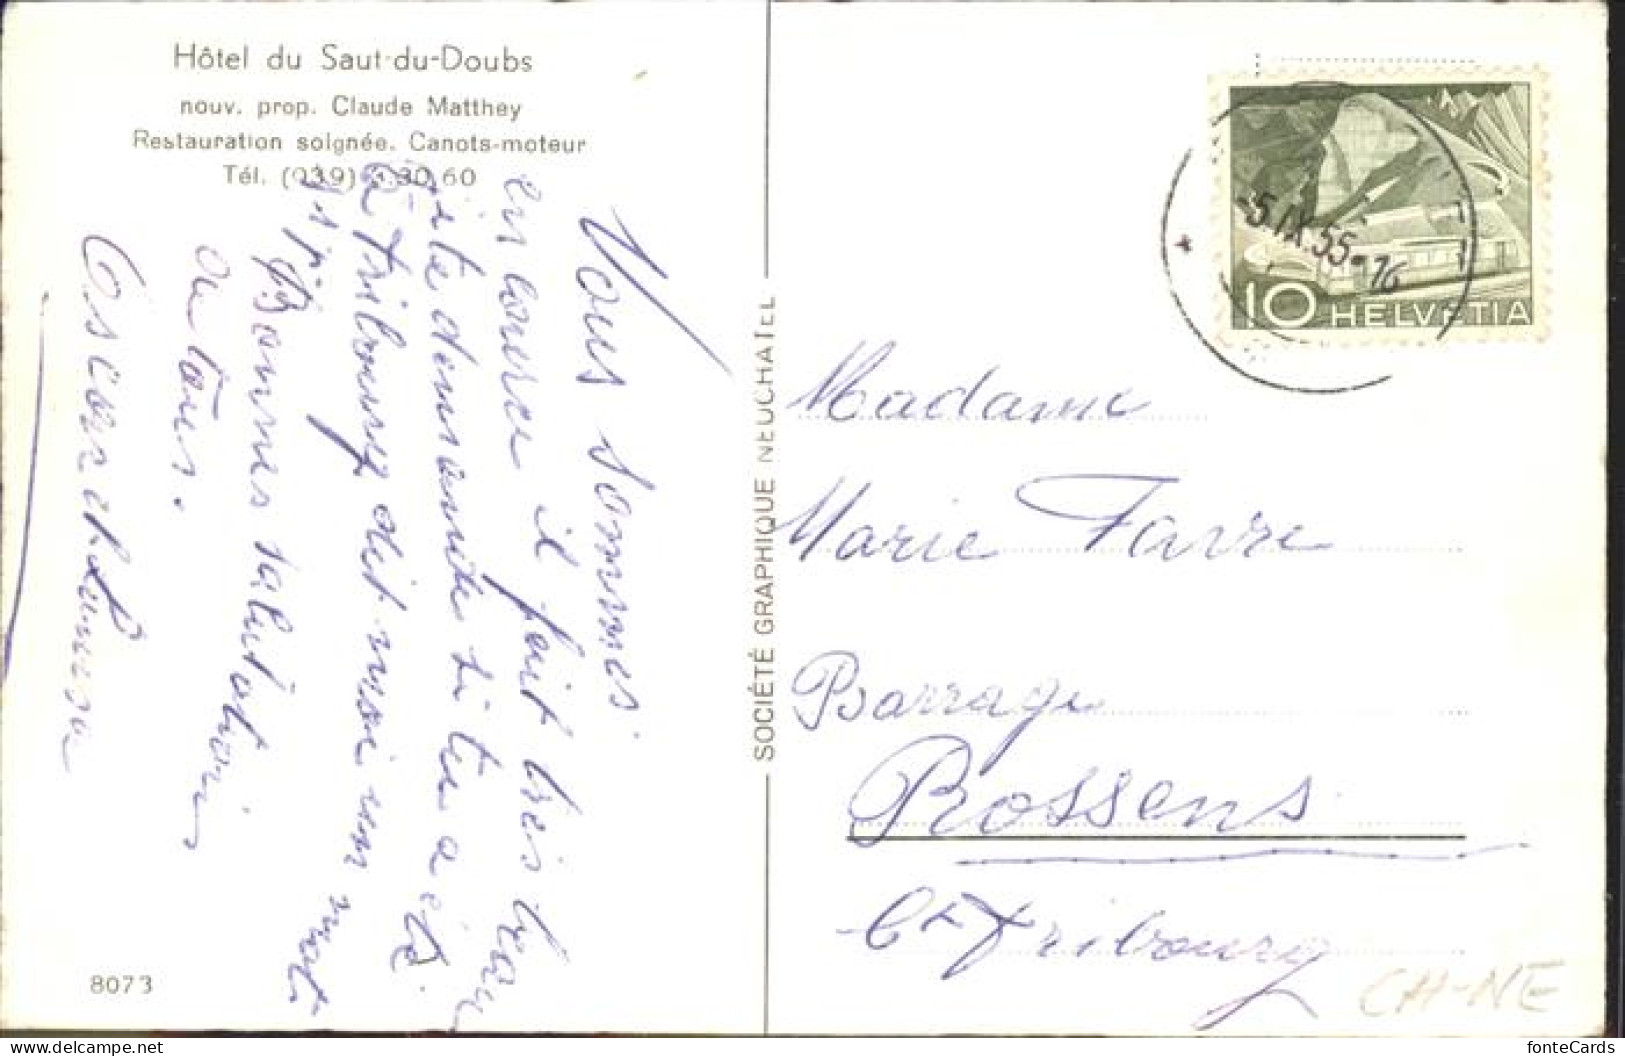 Hôtel du Saut-du-Doubs
nouv. prop. Claude Matthey
Restauration soignée. Canots-moteur
Tél. (039) 30.60
Nous sommes
en course il fait très beau
demande si tu a été
a Fribourg dit moi un mot
s.t.p.
Bonnes salutations
a tous.
Oscar et
8073
SOCIÉTÉ GRAPHIQUE NEUCHATEL
-5.IX.55-16
10 HELVETIA
Madame
Marie Favre
Barrage
Rossens
Ct Fribourg
CH-NE
fonteCards